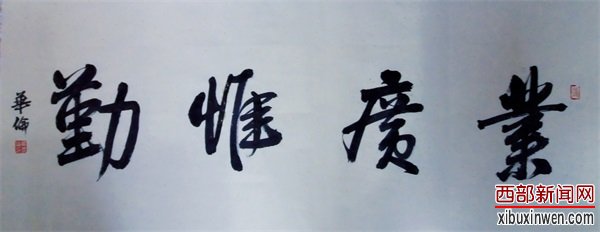 業廣惟勤
華倫
西部新闻网
xibuxinwen.com